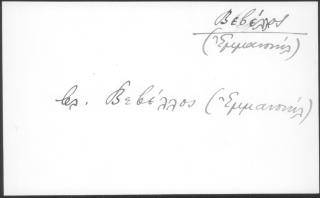 Βεβέλλος
(Ἐμμανουὴλ)
βλ. Βεβέλλος (Ἐμμανουὴλ)